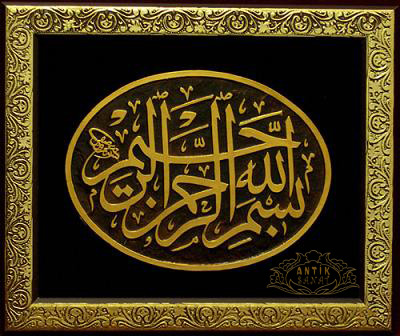 بسم الله الرحمن الرحيم
ANTİK
SANAT